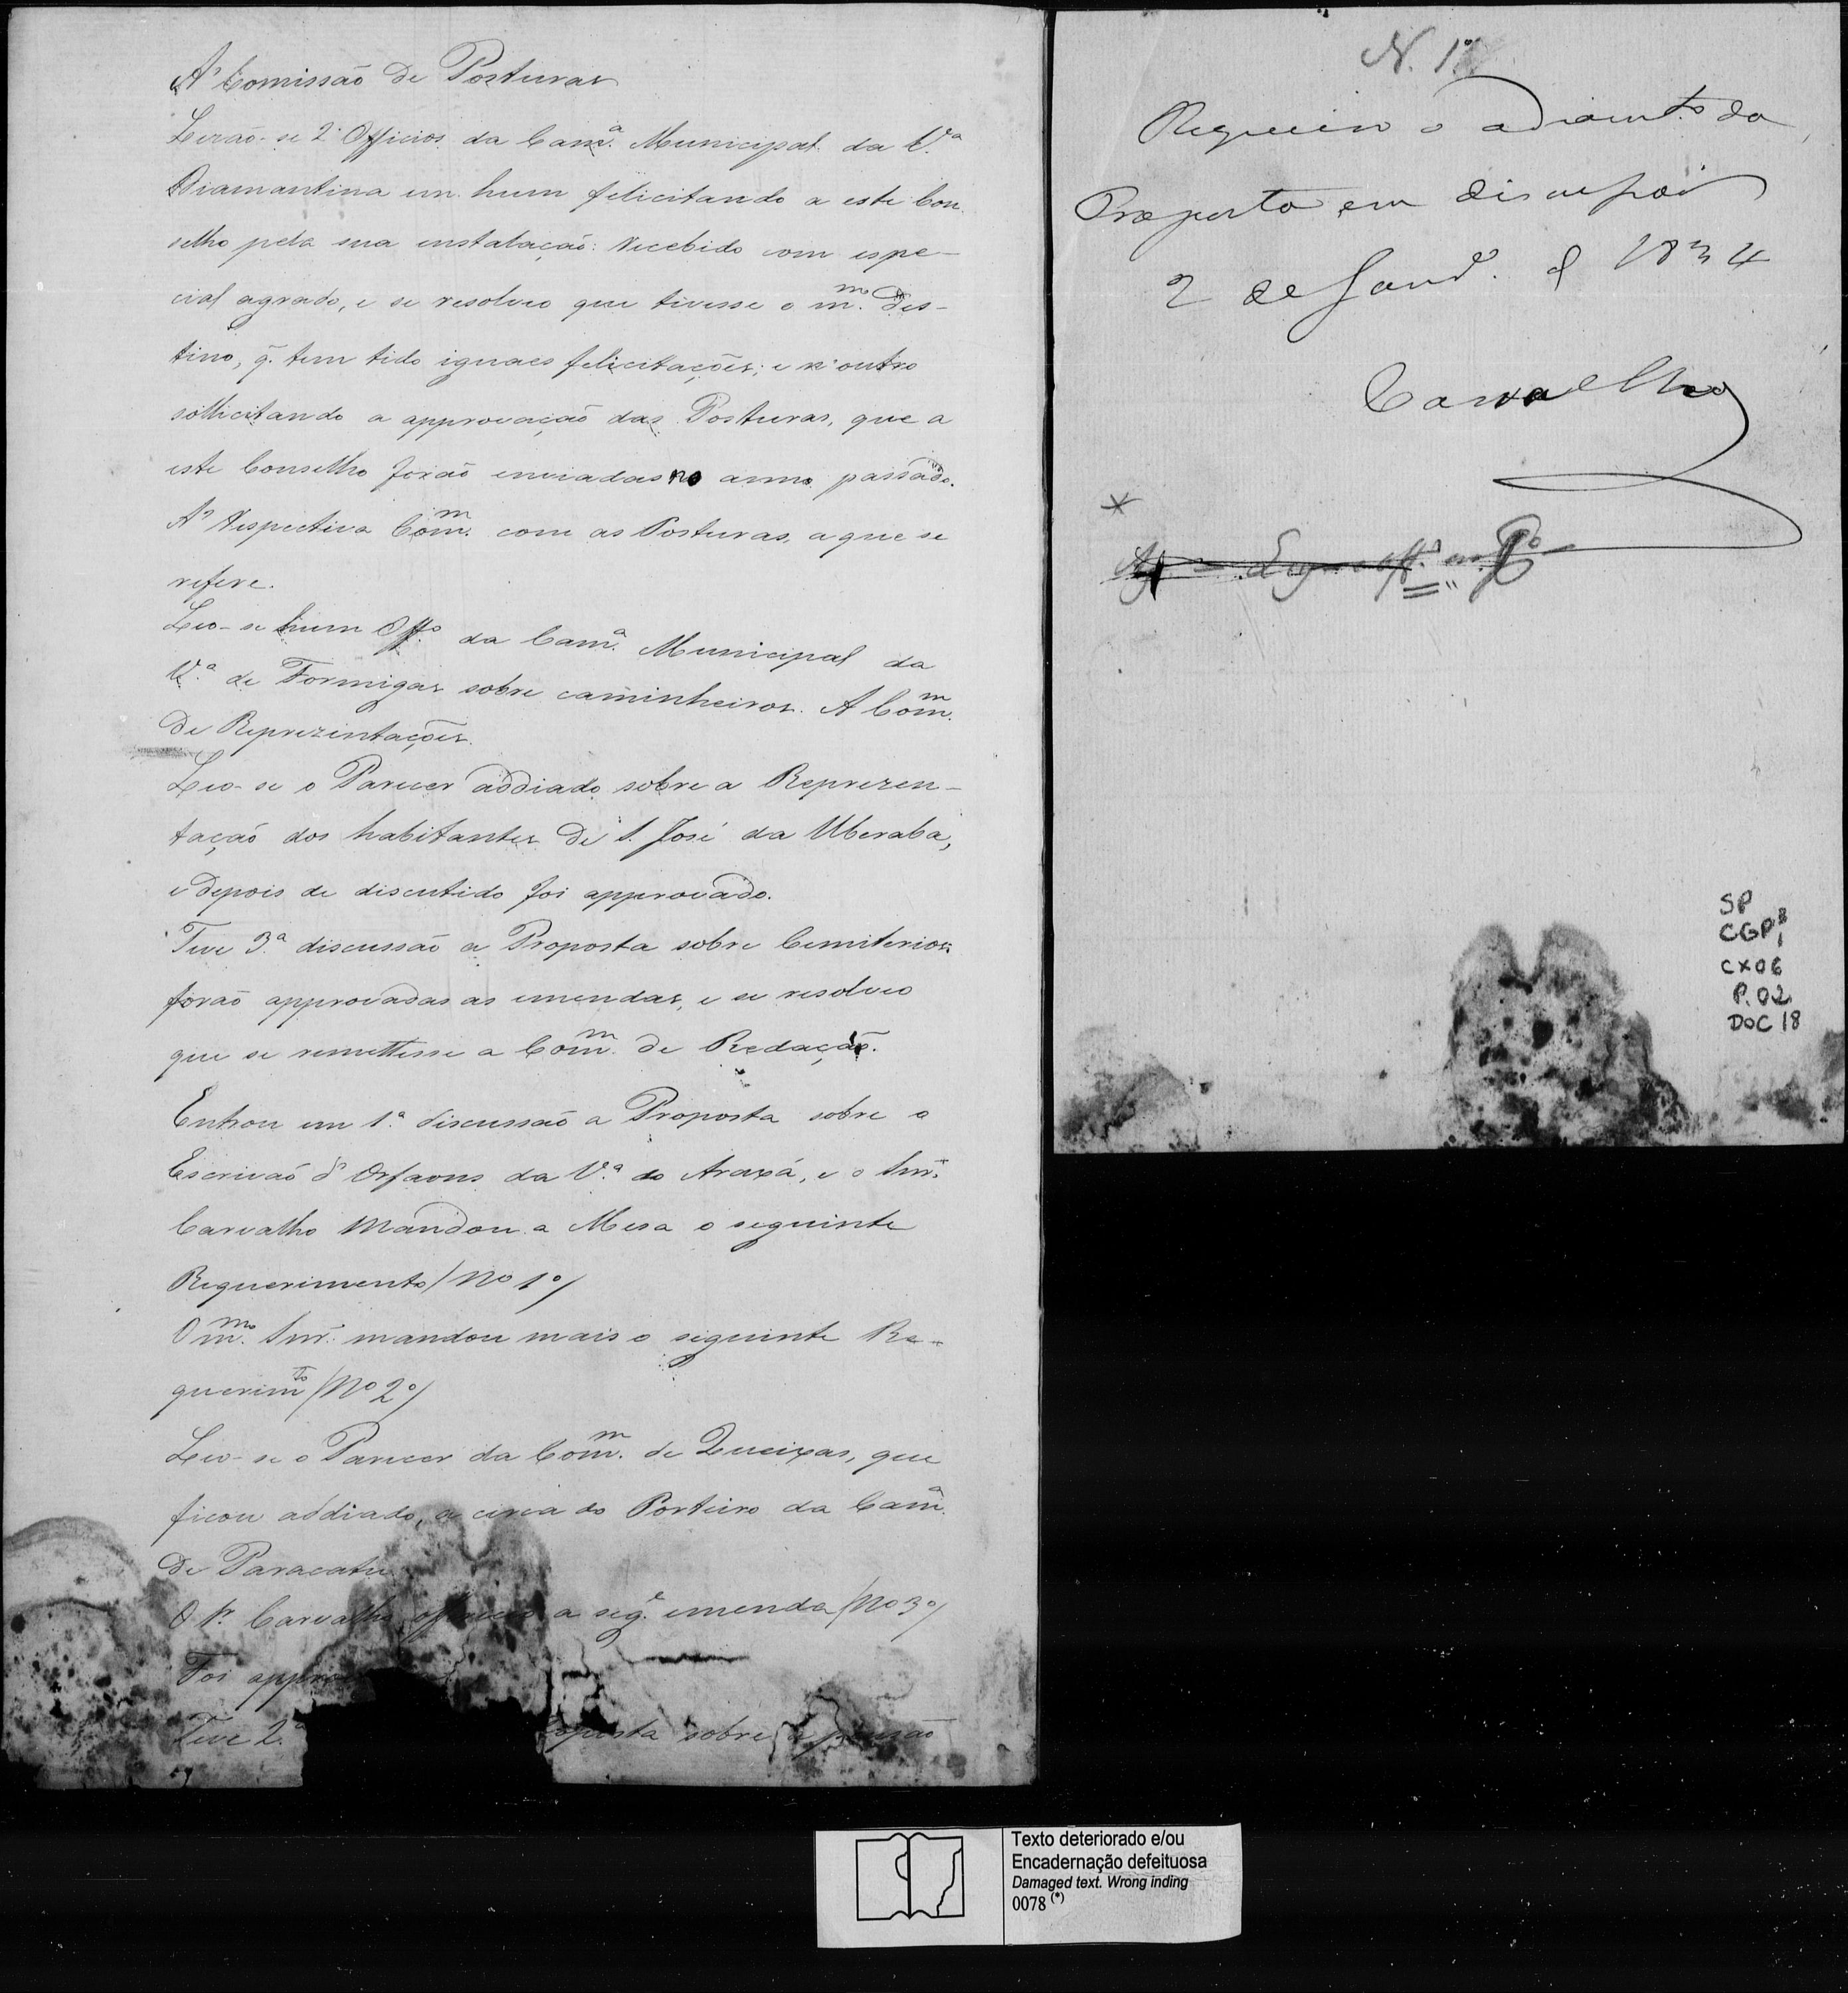 A' Comissão de Posturas
Lerão-se 2 Officios da Cam.ª Municipal da V.ª
Diamantina em hum felicitando a este Con
selho pela sua instalação: recebido com espe-
cial agrado, e se resolveo que tivesse o m.mo des-
tino, q̃. tem tido iguaes felicitações; e n'outro
sollicitando a approvação das Posturas, que a
este Conselho forão enviadas no anno passado.
A' respectiva Com.m com as Posturas, a que se
refere.
Leo-se hum Off.º da Cam.ª Municipal da
V.ª de Formigas sobre caminheiros. A Com.m
de Reprezintações.
Leo-se o Parecer addiado sobre a Reprezen-
tação dos habitantes de S. José da Uberaba,
e depois de discutido foi approvado.
Teve 3.ª discussão a Proposta sobre Cemiterios:
forão approvadas as emendas, e se resolveo
que se remettesse a Com.m de Redação.
Entrou em 1.ª discussão a Proposta sobre o
Escrivão d' Orfaons da V.ª do Araxá, e o Snr.
Carvalho Mandou a Mesa o seguinte
Requerimento / Nº 1º /
O m.mo Snr. mandou mais o seguinte Re-
querim.to / Nº 2º /
Leo-se o Parecer da Com.m de Queixas, que
ficou addiado, a cerca do Porteiro da Cam.ª
de Paracatu
O Sr. Carvalho offereceo a seg.e emenda / Nº 3º /
Foi appro
Teve 2.ª oposta sobre a
N. 1º
Requeiro o adiamt.º da
Proposta em discussão
2 de Janr.º d 1834
Carvalho
SP
CGP 1
CX06
P.02
DOC 18
Texto deteriorado e/ou
Encadernação defeituosa
Damaged text. Wrong inding
0078 (*)